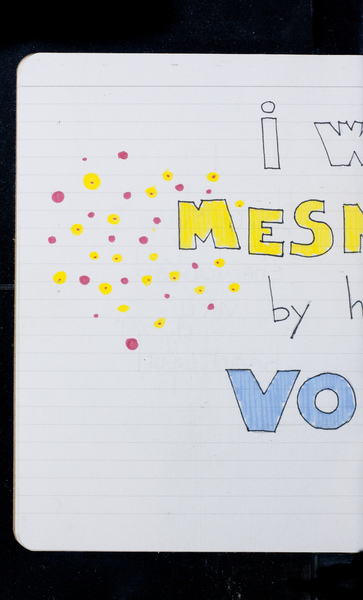 i w
MESM
by h
VO